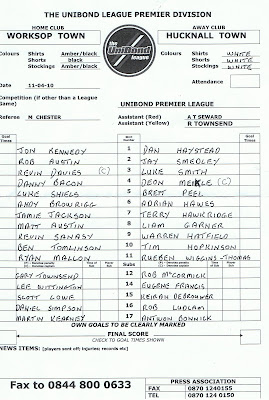 THE UNIBOND LEAGUE PREMIER DIVISION
HOME CLUB AWAY CLUB
WORKSOP TOWN HUCKNALL TOWN
UniBond league
Colours Shirts Amber/black Colours Shirts WHITE
Shorts black Shorts WHITE
Stockings Amber/black Stockings WHITE
Date 11-04-10 Attendance
Competition (if other than a League Game) UNIBOND PREMIER LEAGUE
Referee M CHESTER Assistant (Red) A T SEWARD
Assistant (Yellow) R TOWNSEND
Goal Times Goal Times
JON KENNEDY 1 DAN HAYSTEAD
ROB AUSTIN 2 JAY SMEDLEY
KEVIN DAVIES (C) 3 LUKE SMITH
DANNY BACON 4 DEON MEIKLE (C)
LUKE SHIELS 5 BRETT PEEL
ANDY BROWNRIGG 6 ADRIAN HAWES
JAMIE JACKSON 7 TERRY HAWKRIDGE
MATT AUSTIN 8 LIAM GARNER
KEVIN SANASY 9 WARREN HATFIELD
BEN TOMLINSON 10 TIM HOPKINSON
RYAN MALLON 11 RUEBEN WIGGINS-THOMAS
Subs
GARY TOWNSEND 12 ROB McCORMICK
LEE WITTINGTON 14 EUGENE FRANCIS
SCOTT LOWE 15 KEIRAN DEBROUWER
DANIEL SIMPSON 16 ROB LUDLAM
MARTIN KEARNEY 17 ANTWON BONNICK
OWN GOALS TO BE CLEARLY MARKED
FINAL SCORE
CHECK TO GOAL TIMES SHOWN
NEWS ITEMS: [players sent off; injuries; records etc]
Fax to 0844 800 0633
PRESS ASSOCIATION
FAX 0870 1240155
TEL 0870 124 0150